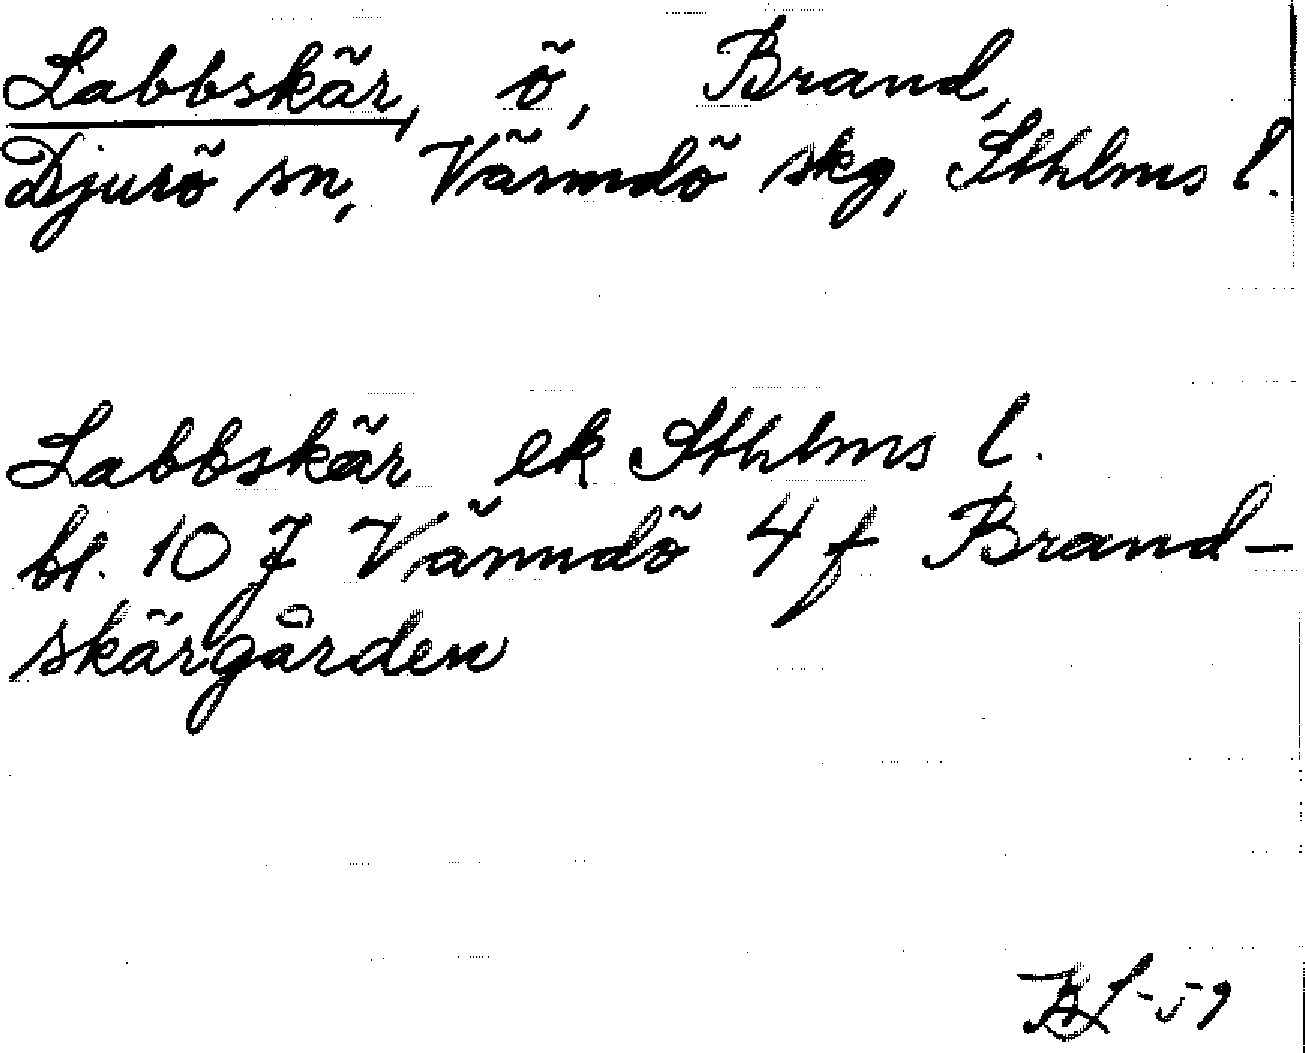 Labbskär, ö, Brand,
Djurö sn, Värmdö skg, Sthlms l.
Labbskär ek Sthlms l.
bl. 10 J Värmdö 4 f Brand-
skärgården